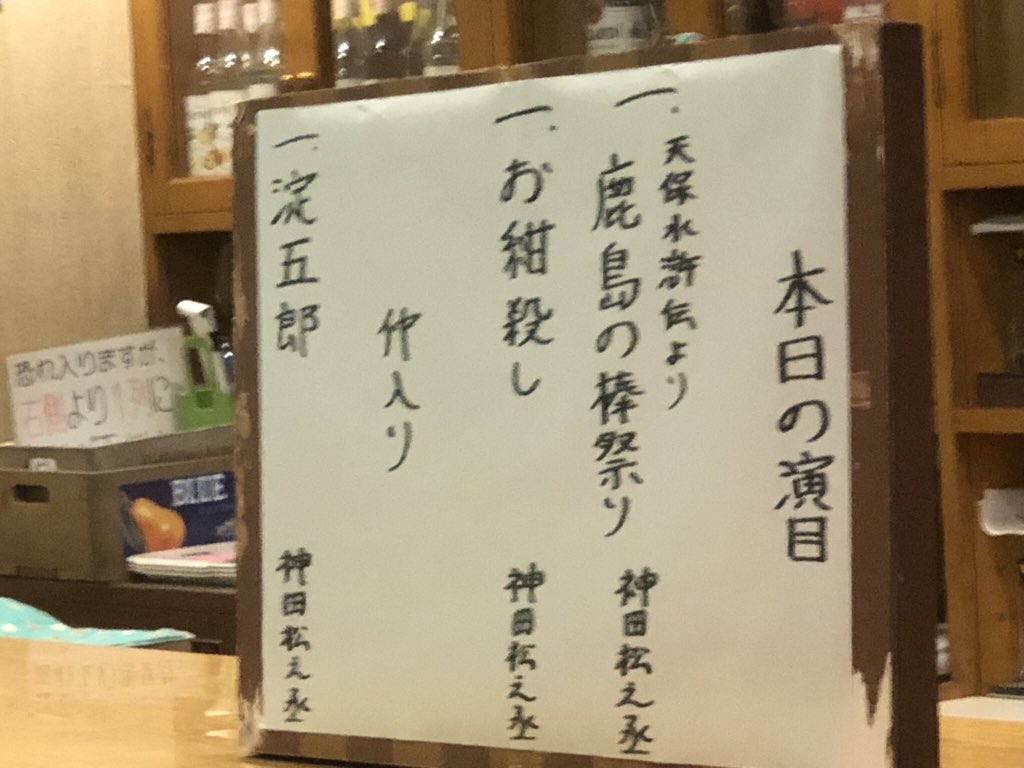 本日の演目
一. 天保水滸伝より
鹿島の棒祭り 神田松之丞
一. お紺殺し 神田松之丞
仲入り
一. 淀五郎 神田松之丞
恐れ入りますが、
右側より1列に
BLUE